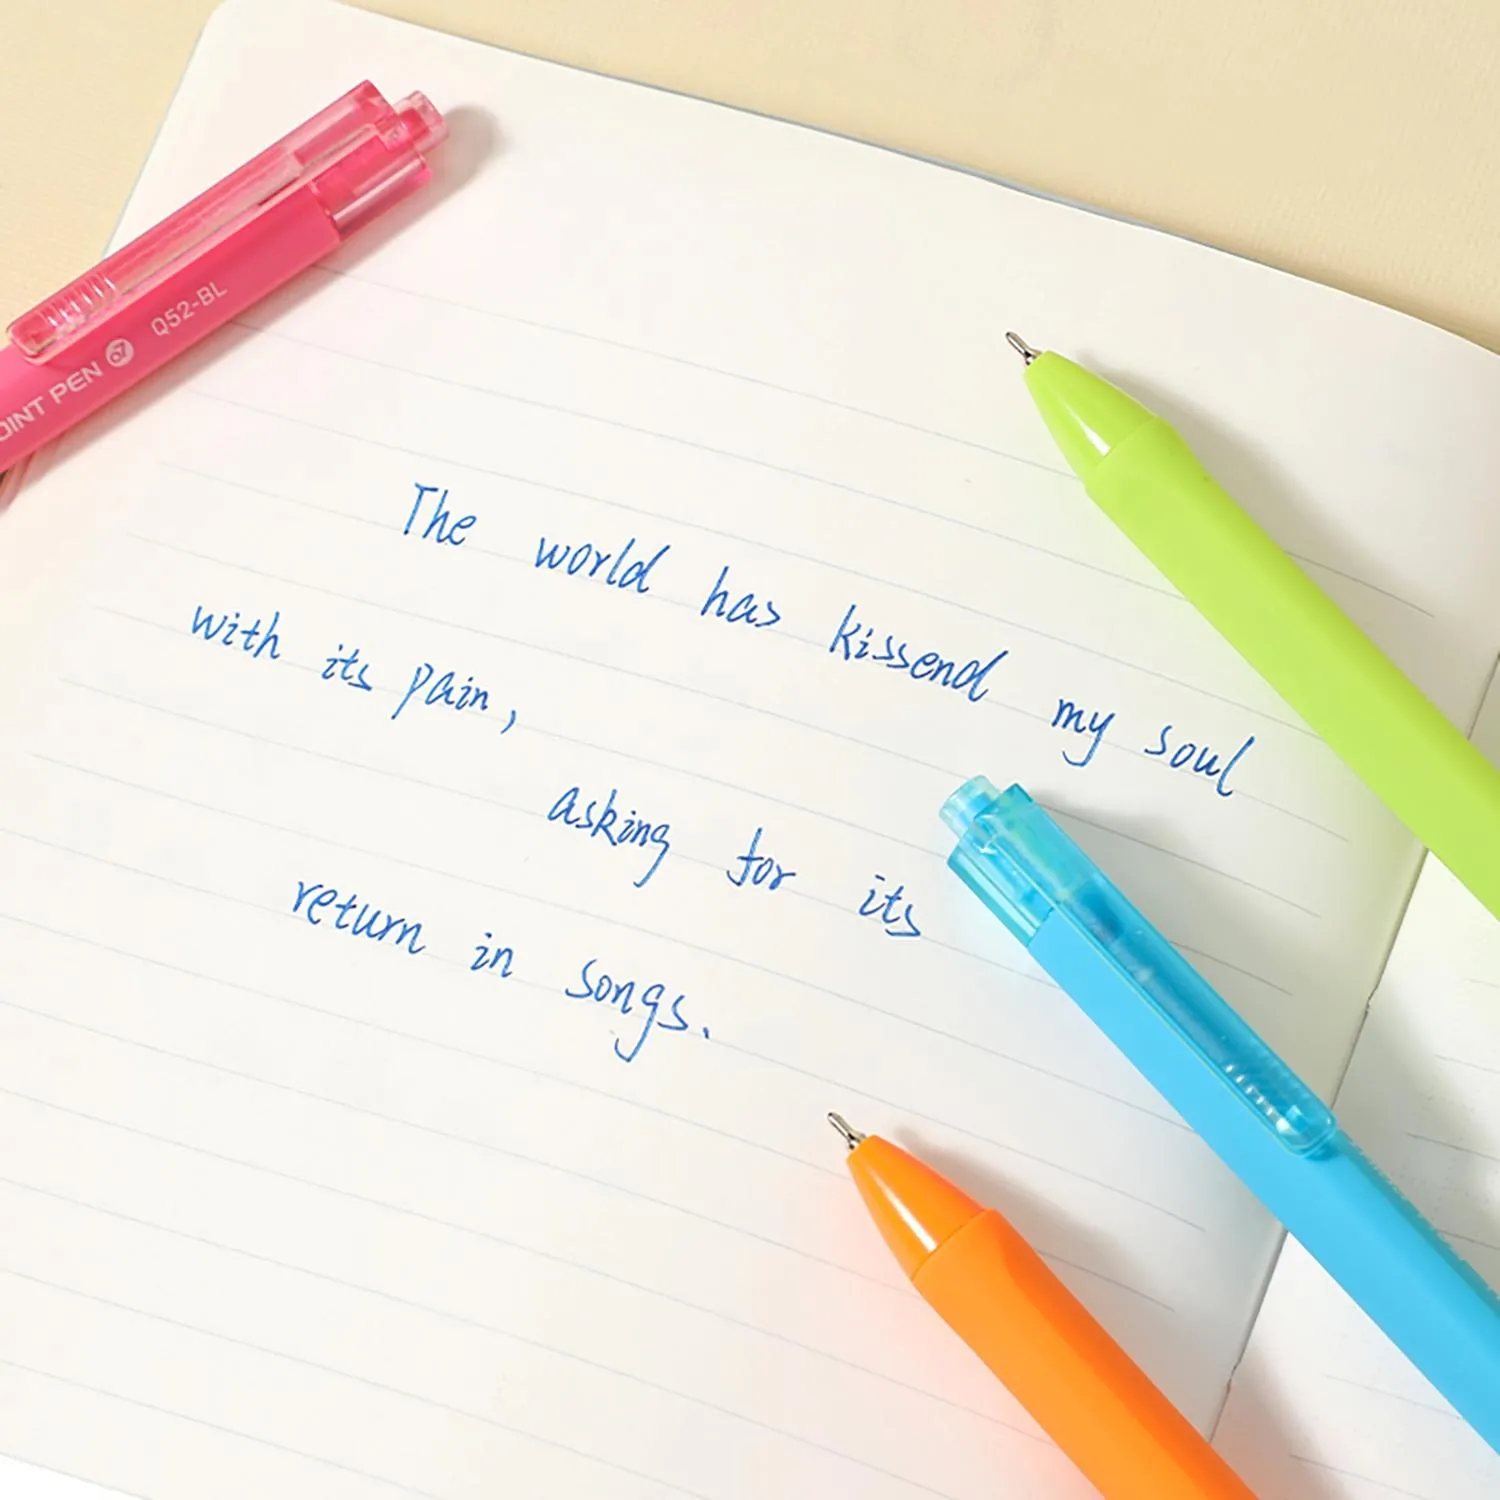 Q52-BL
OINT PEN 67
The world has kissend my soul
with its pain,
asking for its
return in songs.